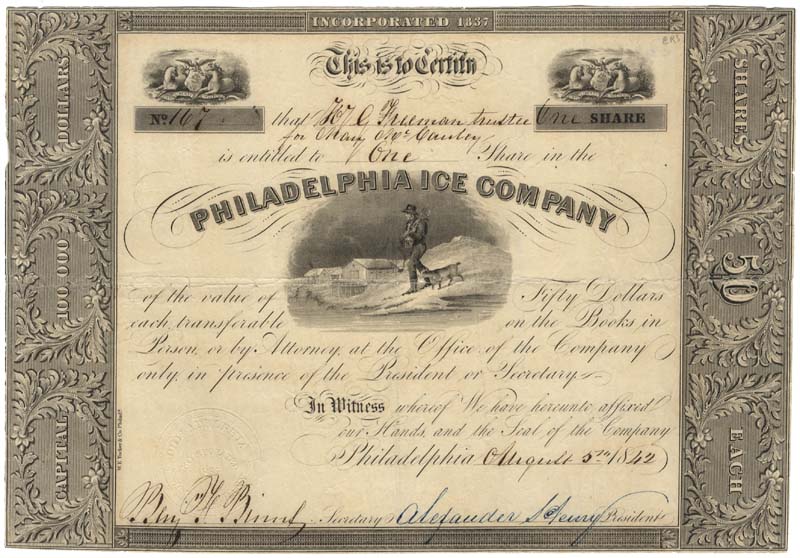 INCORPORATED 1837
This is to Certify
No. 167 that H. G. Freeman trustee One SHARE
for Mary
is entitled to One Share in the
PHILADELPHIA ICE COMPANY
of the value of Fifty Dollars
each, transferable on the Books in
Person, or by Attorney, at the Office of the Company
only, in presence of the President or Secretary
In Witness whereof We have hereunto affixed
our Hands, and the Seal of the Company
Philadelphia August 5th 1842
Secretary Alexander Henry President
CAPITAL 100,000 DOLLARS
SHARES
50
EACH